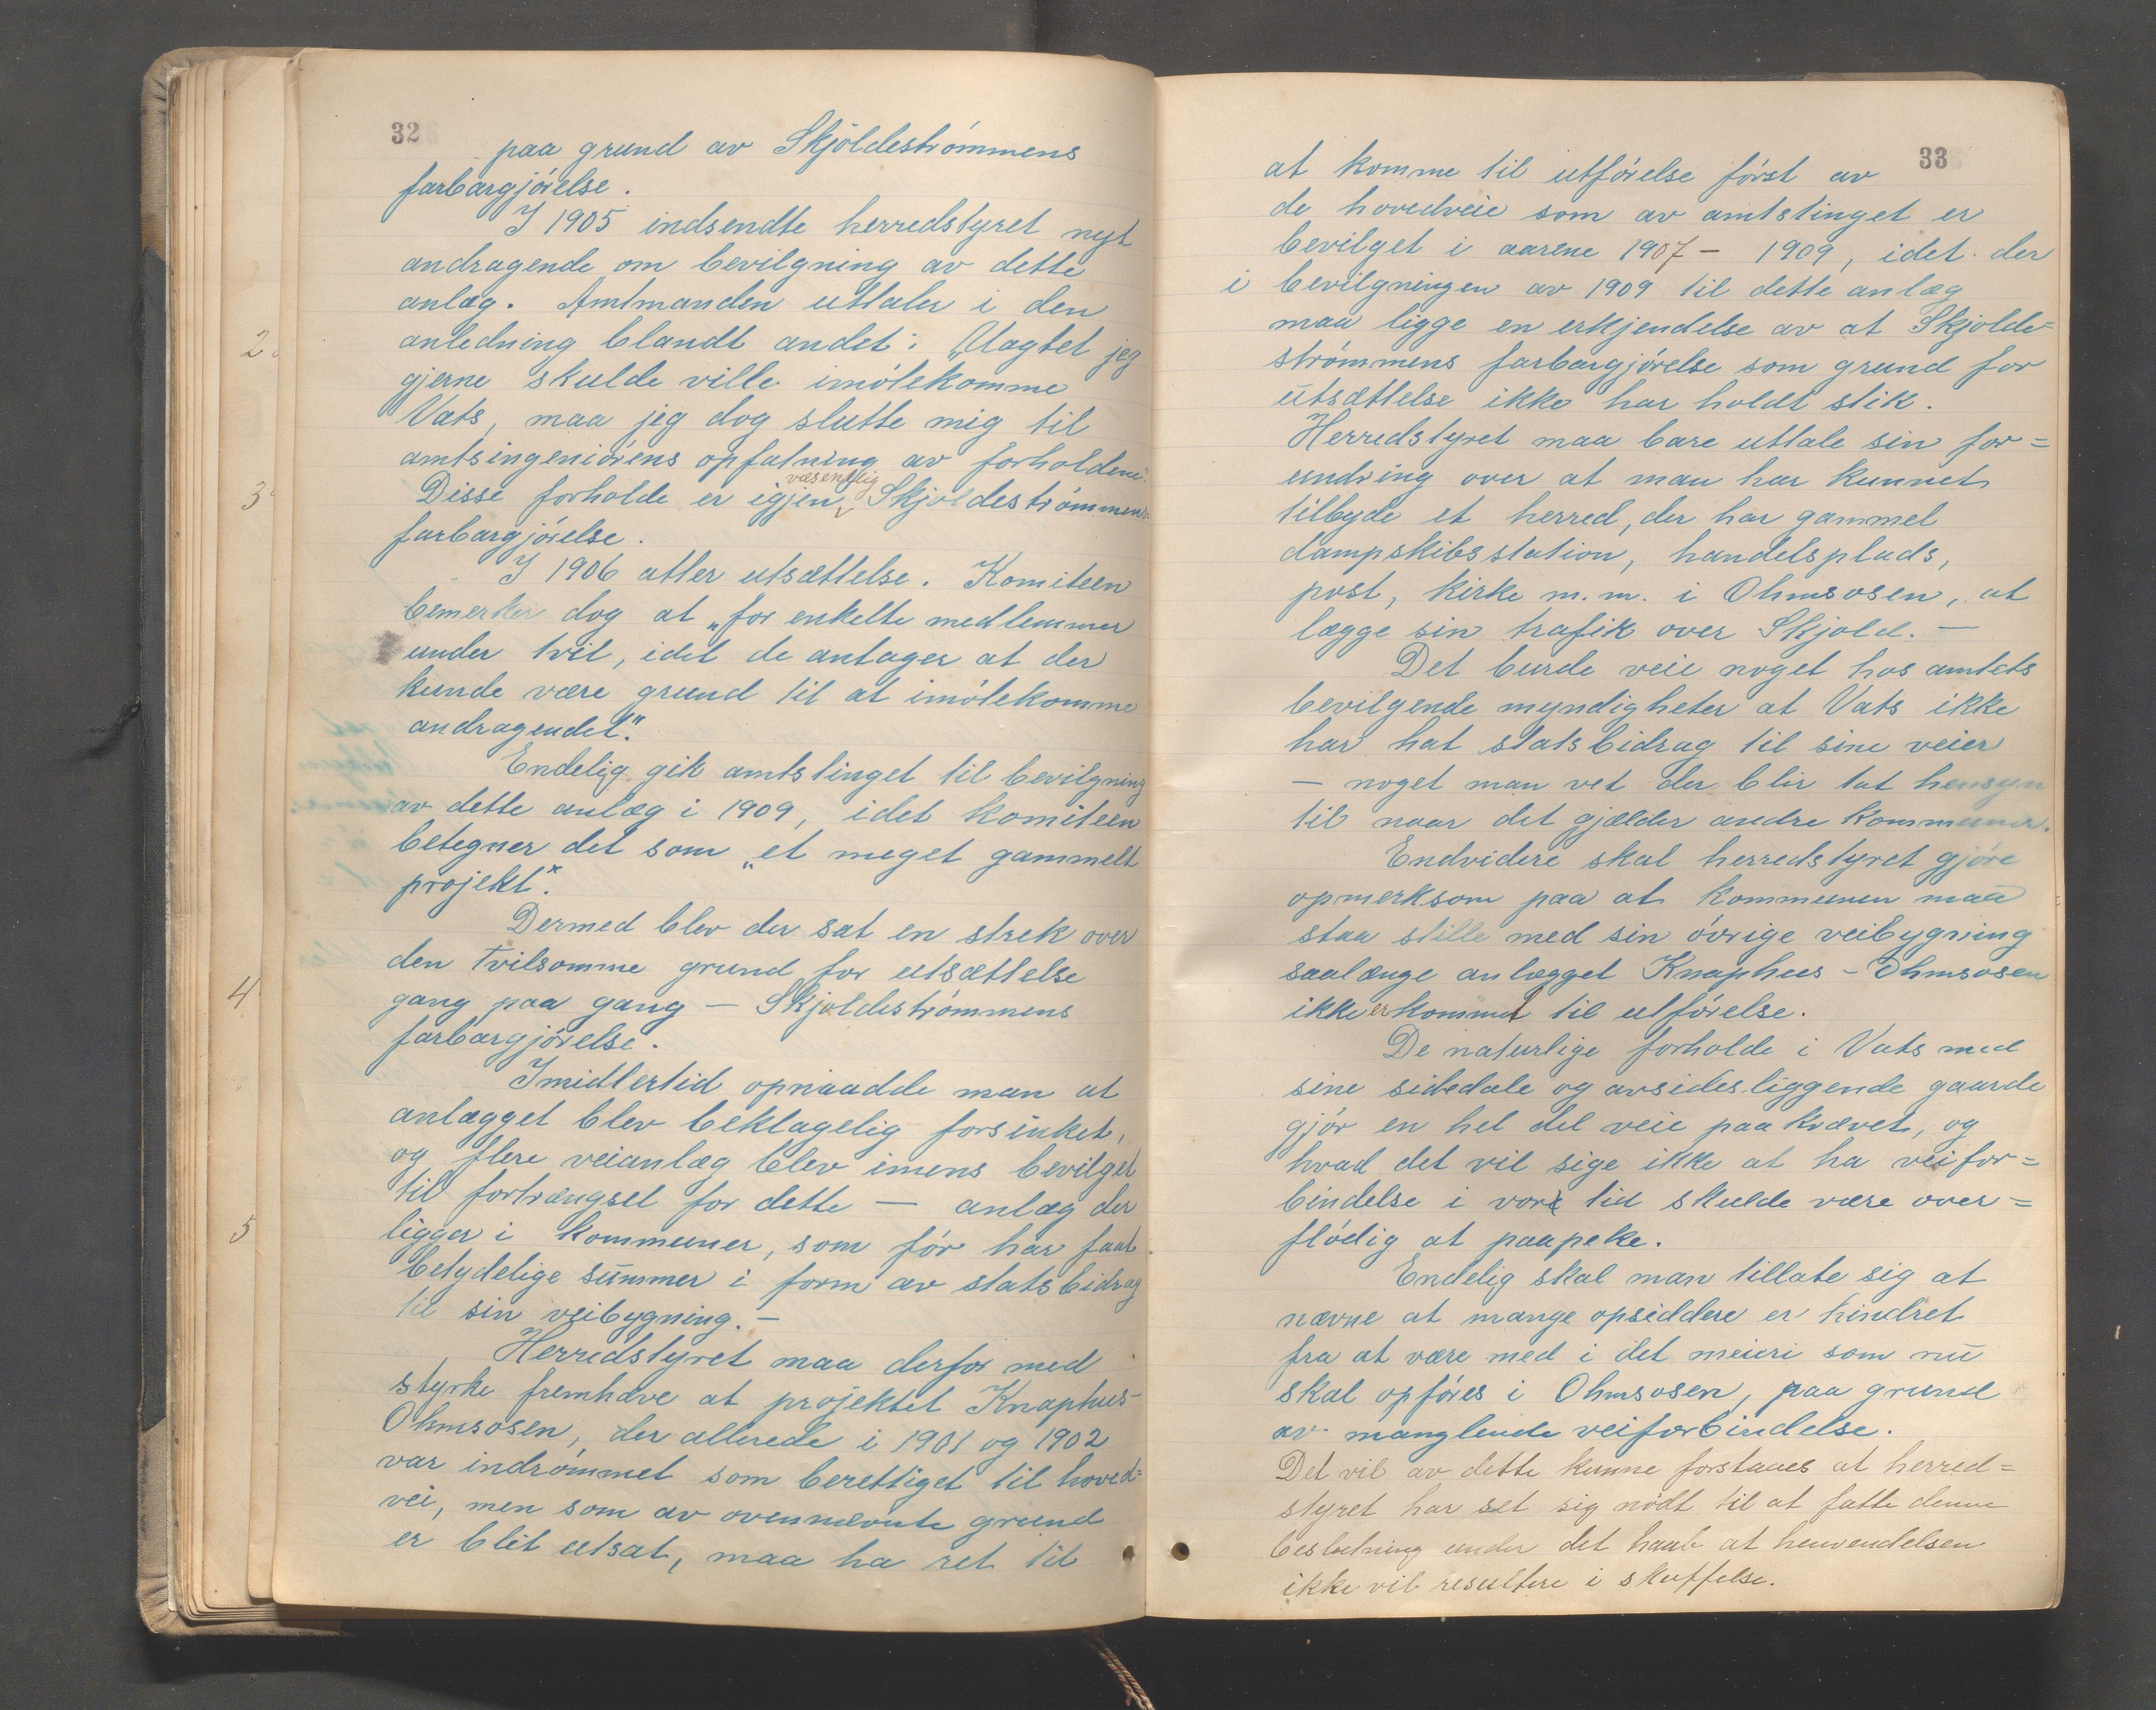 32
paa grund av Skjoldestrømmens
farbargjørelse.
I 1905 indsendte herredstyret nyt
andragende om bevilgning av dette
anlæg. Amtmanden uttaler i den
anledning blandt andet: „Uagtet jeg
gjerne skulde ville imøtekomme
Vats, maa jeg dog slutte mig til
amtsingeniørens opfatning av forholdene".
væsentlig
Disse forholde er igjen Skjoldestrømmens
farbargjørelse.
I 1906 atter utsættelse. Komiteen
bemerker dog at „for enkelte medlemmer
under tvil, idet de antager at der
kunde være grund til at imøtekomme
andragendet."
Endelig gik amtstinget til bevilgning
av dette anlæg i 1909, idet komiteen
betegner det som „et meget gammelt
projekt".
Dermed blev der sat en strek over
den tvilsomme grund for utsættelse
gang paa gang — Skjoldestrømmens
farbargjørelse.
Imidlertid opnaadde man at
anlægget blev beklagelig forsinket,
og flere veianlæg blev imens bevilget
til fortrængsel for dette — anlæg der
ligger i kommuner, som før har faat
betydelige summer i form av statsbidrag
til sin veibygning. —
Herredstyret maa derfor med
styrke fremhæve at projektet Knaphus-
Ohmsosen, der allerede i 1901 og 1902
var indrømmet som berettiget til hoved=
vei, men som av ovennævnte grund
er blit utsat, maa ha ret til
33
at komme til utførelse først av
de hovedveie som av amtstinget er
bevilget i aarene 1907 – 1909, idet der
i bevilgningen av 1909 til dette anlæg
maa ligge en erkjendelse av at Skjolde=
strømmens farbargjørelse som grund for
utsættelse ikke har holdt stik.
Herredstyret maa bare uttale sin for=
undring over at man har kunnet
tilbyde et herred, der har gammel
dampskibsstation, handelsplads,
post, kirke m.m. i Ohmsosen, at
lægge sin trafik over Skjold. —
Det burde veie noget hos amtets
bevilgende myndigheter at Vats ikke
har hat statsbidrag til sine veier
— noget man vet der blir tat hensyn
til naar det gjælder andre kommuner.
Endvidere skal herredstyret gjøre
opmerksom paa at kommunen maa
staa stille med sin øvrige veibygning
saalænge anlægget Knaphus – Ohmsosen
ikke er kommet til utførelse.
De naturlige forholde i Vats med
sine sidedale og avsidesliggende gaarde
gjør en hel del veie paakrævet, og
hvad det vil sige ikke at ha veifor=
bindelse i vor tid skulde være over=
flødig at paapeke.
Endelig skal man tillate sig at
nævne at mange opsiddere er hindret
fra at være med i det meieri som nu
skal opføres i Ohmsosen, paa grund
av manglende veiforbindelse.
Det vil av dette kunne forstaaes at herred=
styret har set sig nødt til at fatte denne
beslutning under det haab at henvendelsen
ikke vil resultere i skuffelse.
2.
3
4
5